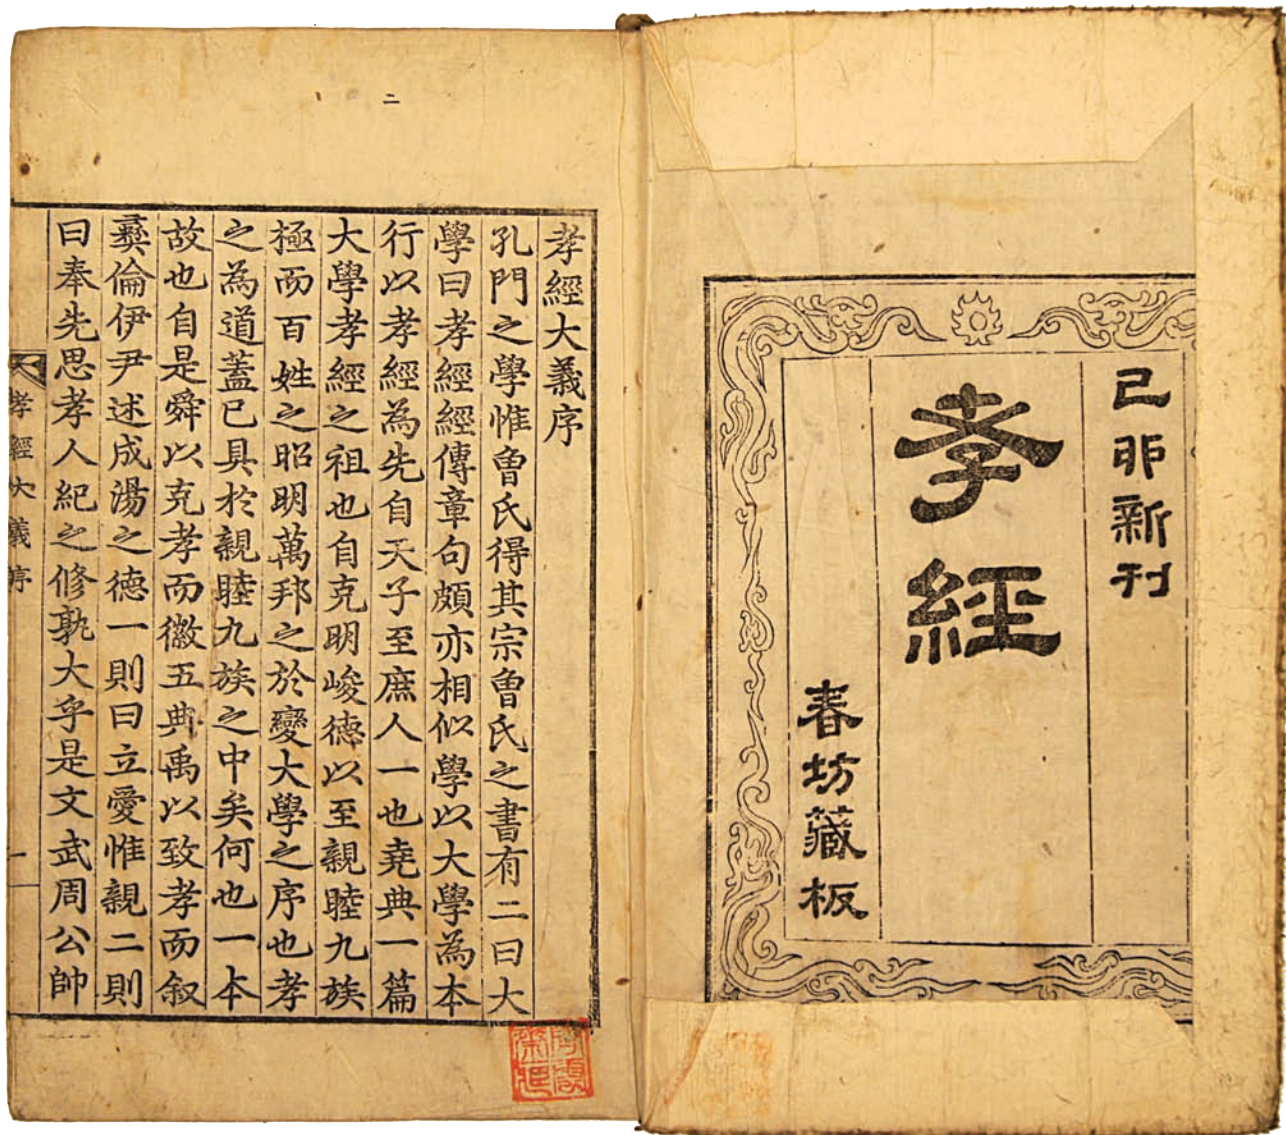 己卯新刊
孝經
春坊藏板
二
孝經大義序
孔門之學惟曾氏得其宗曾氏之書有二曰大
學曰孝經經傳章句頗亦相似學以大學為本
行以孝經為先自天子至庶人一也堯典一篇
大學孝經之祖也自克明峻德以至親睦九族
極而百姓之昭明萬邦之於變大學之序也孝
之為道蓋已具於親睦九族之中矣何也一本
故也自是舜以克孝而徽五典禹以致孝而叙
彝倫伊尹述成湯之德一則曰立愛惟親二則
曰奉先思孝人紀之修孰大乎是文武周公帥
孝經大義序
一